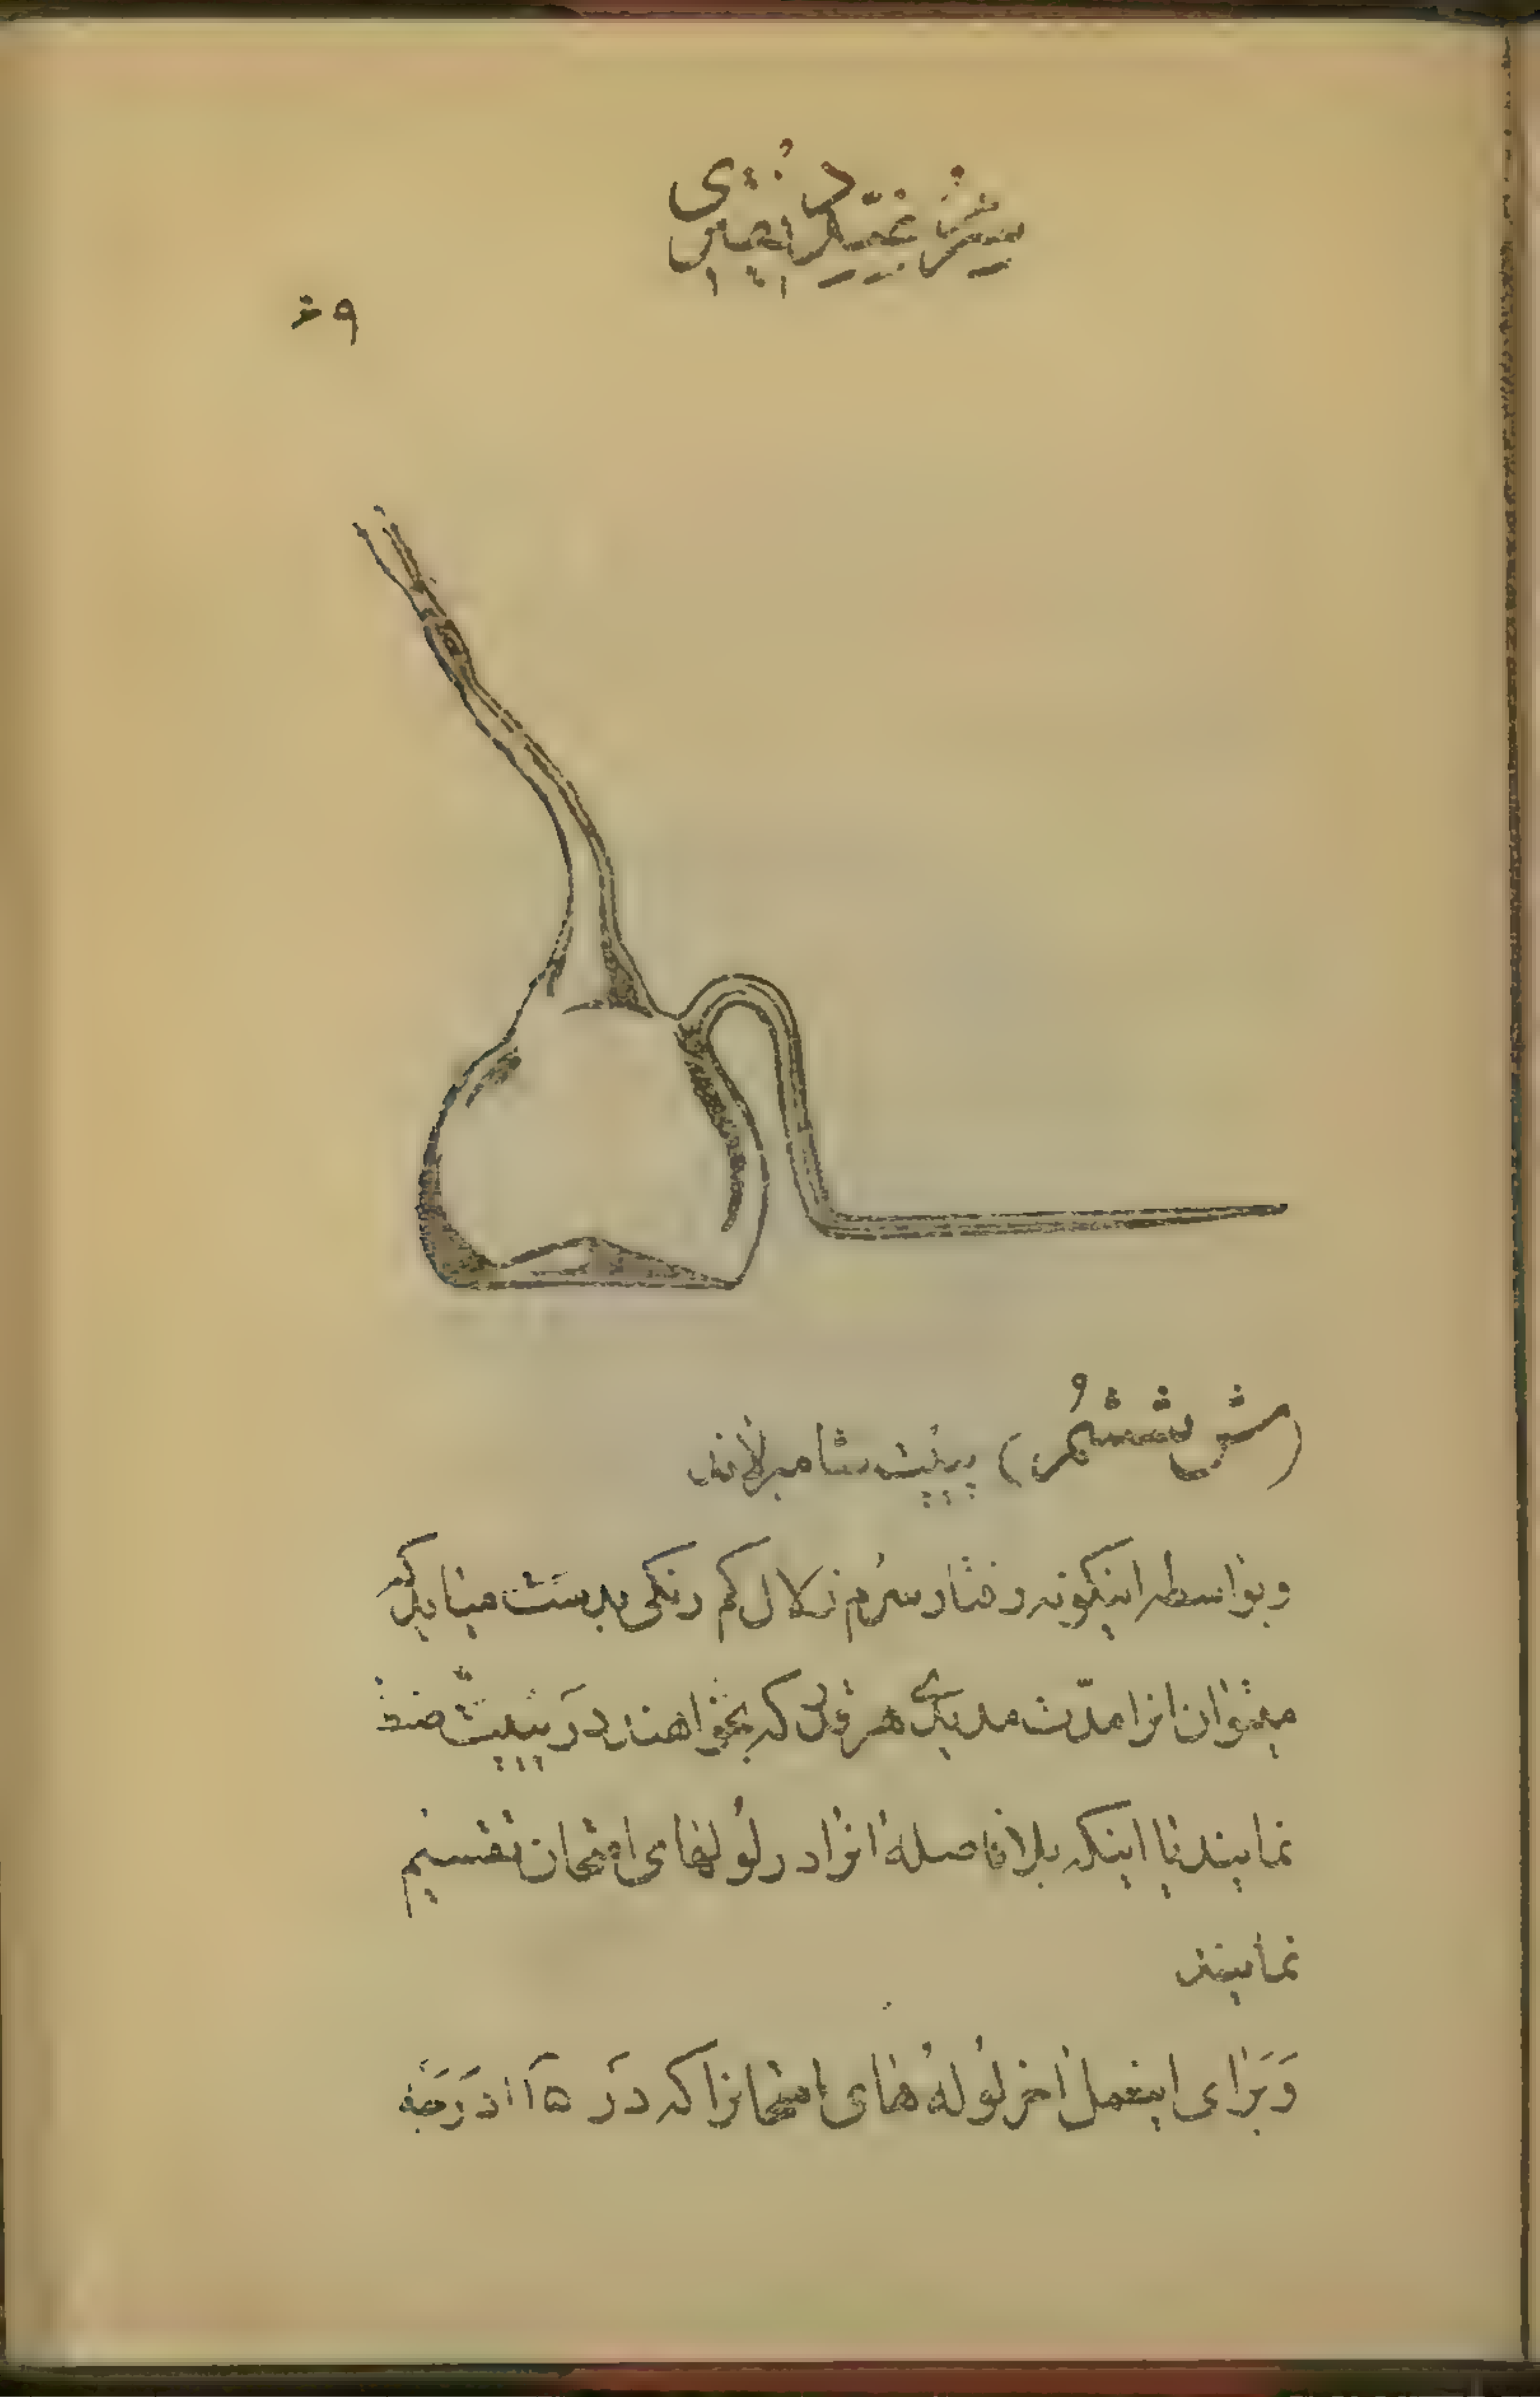 (ش ششم) پیپت شامبرلاند
وبواسطه اینگونه رفتار سرم زلال کم رنگی بدست میاید که
میتوان انرا مدت مدیدی هر قدر که بخواهند در پیپت ضبط
نمایند یا اینکه بلافاصله انرا در لولهای امتحان تقسیم
نمایند
وَبَرای اینعمل اخر لوله های امتحانرا که در ۱۱۵ درجه